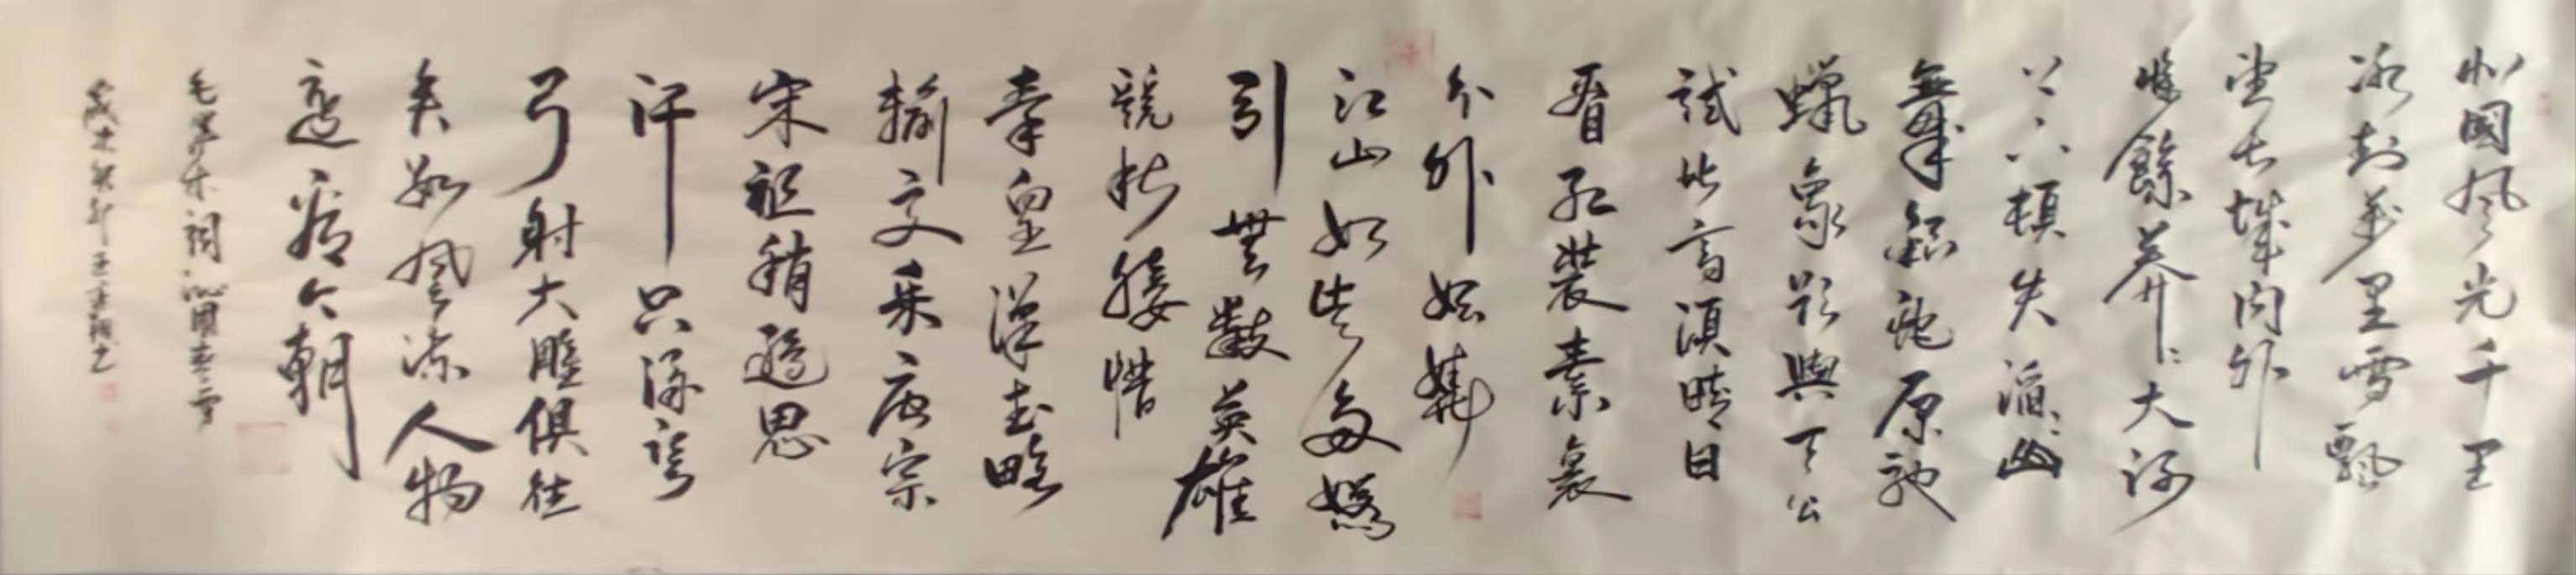 北國風光千里
冰封萬里雪飄
望長城內外
惟餘莽莽大河
上下頓失滔滔山
舞銀蛇原馳
蠟象欲與天公
試比高須晴日
看紅裝素裹
分外妖嬈
江山如此多嬌
引無數英雄
競折腰惜
秦皇漢武略
輸文采唐宗
宋祖稍遜思
汗只識彎
弓射大雕俱往
矣數風流人物
還看今朝
毛澤東詞沁園春雪